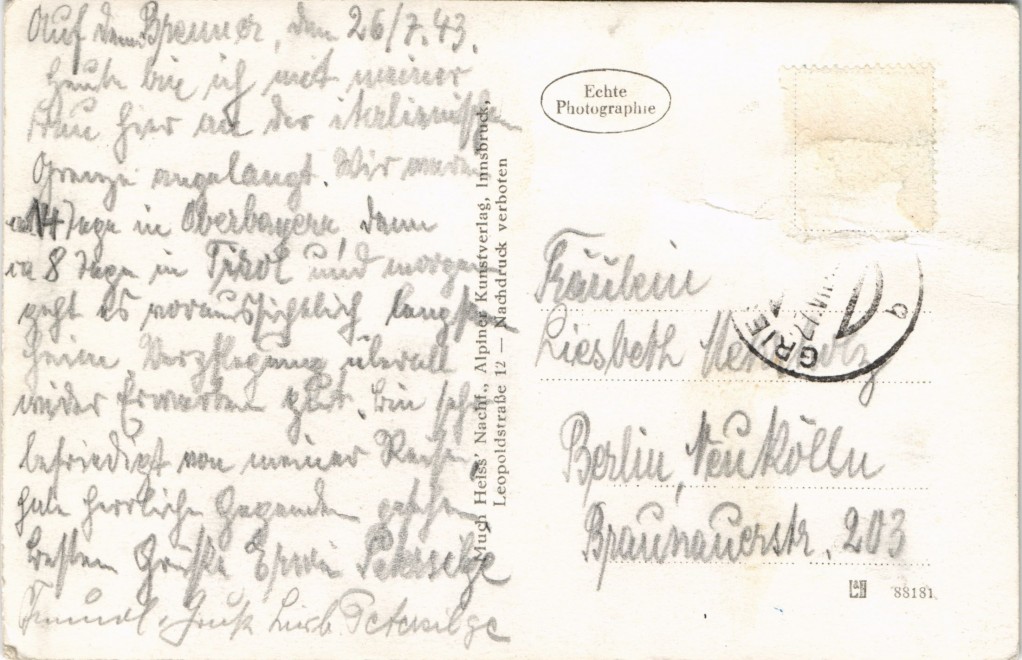 Auf dem Brenner, den 26/7.43.
Heute bin ich mit meiner
Frau hier an der italienischen
Grenze angelangt. Wir waren
14 Tage in Oberbayern dann
ca 8 Tage in Tirol und morgen
geht es voraussichtlich langsam
heim. Verpflegung überall
wider Erwarten gut. Bin sehr
befriedigt von meiner Reise,
habe herrliche Gegenden gesehen
Besten Grüße Erwin Petersilge
Freundl. Gruß Petersilge
Much Heiss' Nachf., Alpiner Kunstverlag, Innsbruck,
Leopoldstraße 12 — Nachdruck verboten
Echte
Photographie
GRIES
Fräulein
Liesbeth
Berlin, Neukölln
Braunauerstr. 203
88181